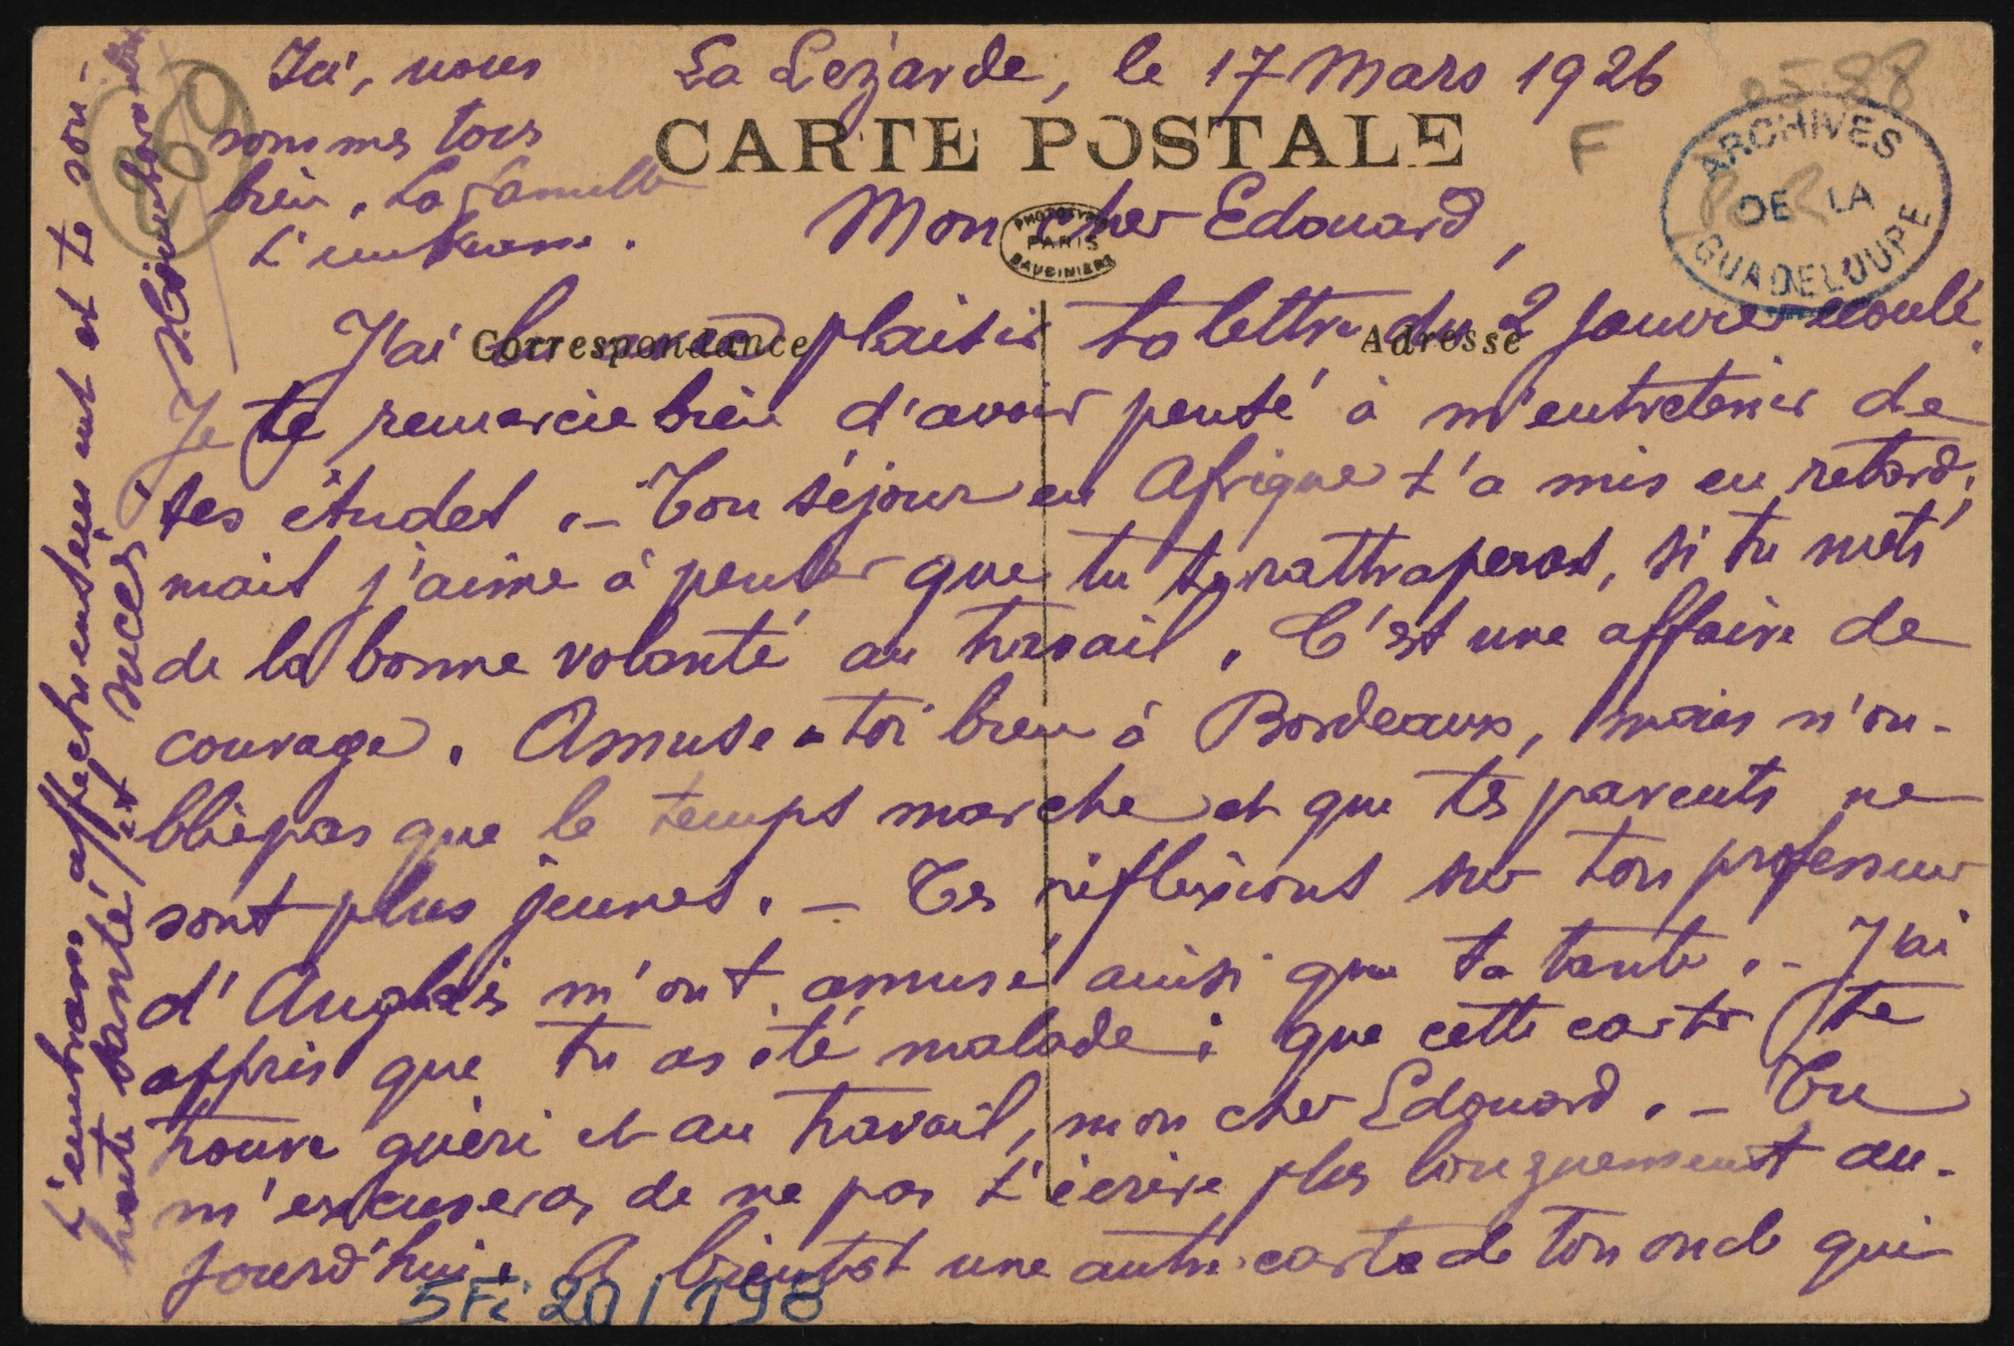 La Lézarde, le 17 Mars 1926
CARTE POSTALE
Mon cher Edouard,
Correspondance
Adresse
J'ai lu avec plaisir ta lettre du 2 Janvier écoulé.
Je te remercie bien d'avoir pensé à m'entretenir de
tes études. – Ton séjour en Afrique t'a mis en retard,
mais j'aime à penser que tu te rattraperas, si tu mets
de la bonne volonté au travail. C'est une affaire de
courage. Amuse-toi bien à Bordeaux, mais n'ou-
blie pas que le temps marche et que tes parents ne
sont plus jeunes. – Tes réflexions sur ton professeur
d'Anglais m'ont amusé ainsi que ta tante. – J'ai
appris que tu as été malade ; que cette carte te
trouve guéri et au travail, mon cher Edouard. – Tu
m'excuseras de ne pas t'écrire plus longuement au-
jourd'hui. A bientôt une autre carte de ton oncle qui
t'embrasse affectueusement et te sou-
haite santé et succès.
Ici, nous
sommes tous
bien. La famille
t'embrasse.
260
0588
F
ARCHIVES
DE LA
GUADELOUPE
PHOTOTYPIE
PARIS
BAUDINIERE
5Fi 20/198